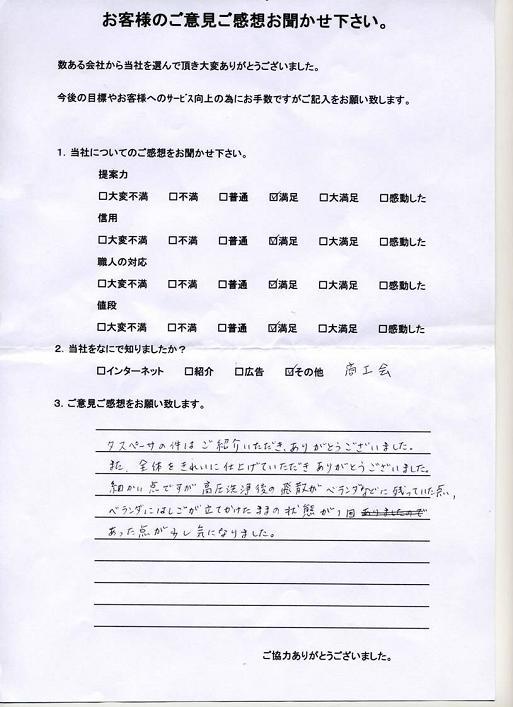 お客様のご意見ご感想お聞かせ下さい。
数ある会社から当社を選んで頂き大変ありがとうございました。
今後の目標やお客様へのサービス向上の為にお手数ですがご記入をお願い致します。
1．当社についてのご感想をお聞かせ下さい。
提案力
□大変不満 □不満 □普通 ☑満足 □大満足 □感動した
信用
□大変不満 □不満 □普通 ☑満足 □大満足 □感動した
職人の対応
□大変不満 □不満 □普通 ☑満足 □大満足 □感動した
値段
□大変不満 □不満 □普通 ☑満足 □大満足 □感動した
2．当社をなにで知りましたか？
□インターネット □紹介 □広告 ☑その他 商工会
3．ご意見ご感想をお願い致します。
タスペーサの件はご紹介いただき、ありがとうございました。
また、全体をきれいに仕上げていただきありがとうございました。
細かい点ですが高圧洗浄後の飛散がベランダなどに残っていた点、
ベランダにはしごが立てかけたままの状態が1回
あった点が少し気になりました。
ご協力ありがとうございました。